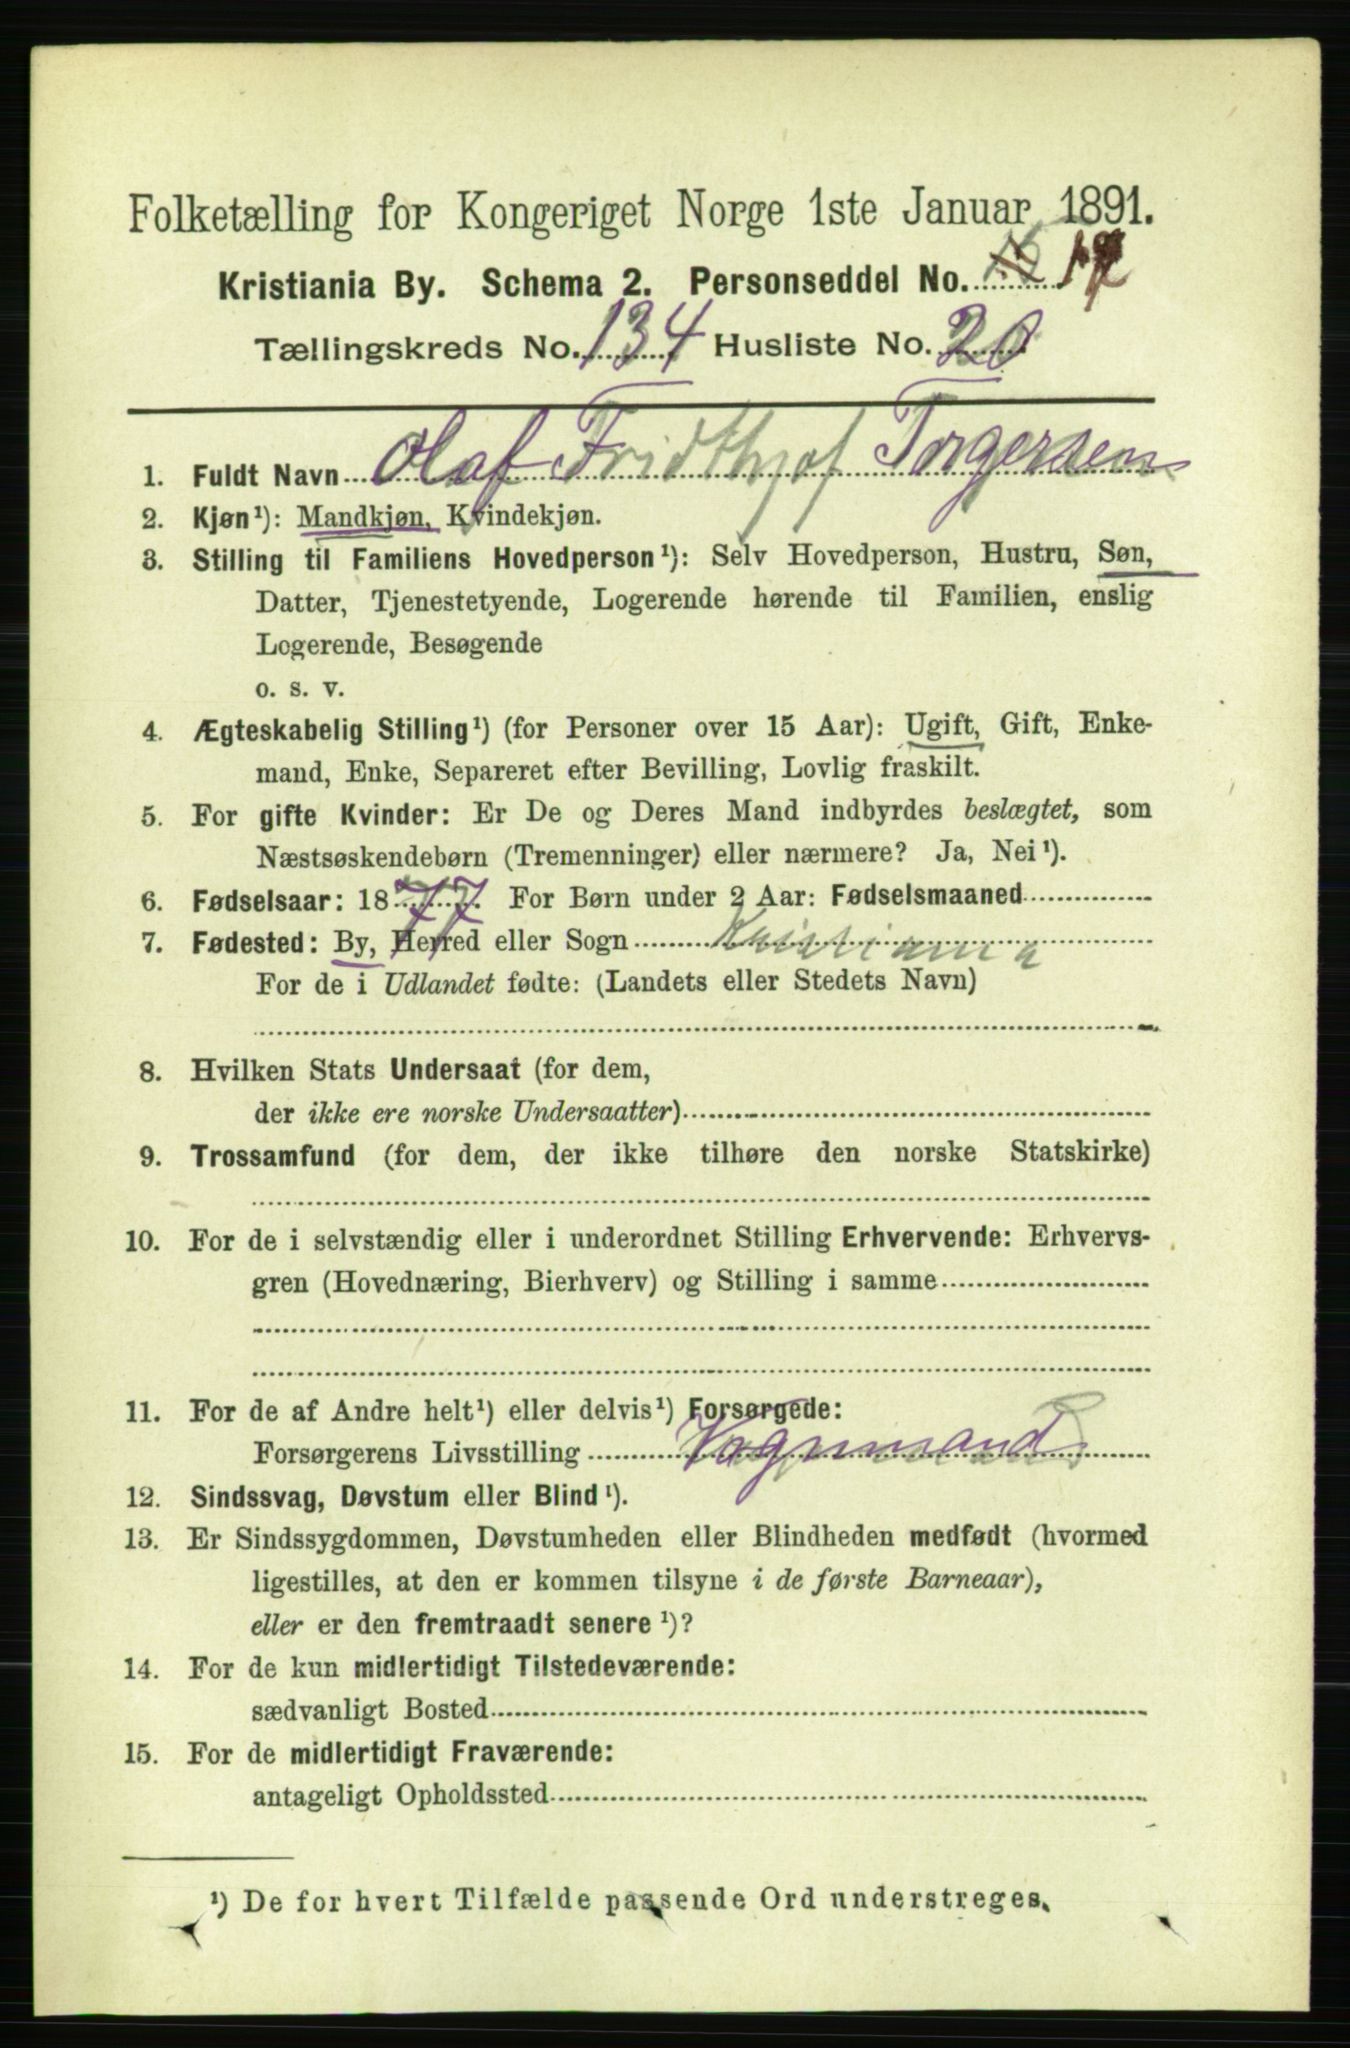 Folketælling for Kongeriget Norge 1ste Januar 1891.
Kristiania By. Schema 2. Personseddel No. 17
Tællingskreds No. 134 Husliste No. 20
1. Fuldt Navn Olaf Fridthjof Torgersen
2. Kjøn¹): Mandkjøn, Kvindekjøn.
3. Stilling til Familiens Hovedperson¹): Selv Hovedperson, Hustru, Søn,
Datter, Tjenestetyende, Logerende hørende til Familien, enslig
Logerende, Besøgende
o. s. v.
4. Ægteskabelig Stilling¹) (for Personer over 15 Aar): Ugift, Gift, Enke-
mand, Enke, Separeret efter Bevilling, Lovlig fraskilt.
5. For gifte Kvinder: Er De og Deres Mand indbyrdes beslægtet, som
Næstsøskendebørn (Tremenninger) eller nærmere? Ja, Nei¹).
6. Fødselsaar: 1877. For Børn under 2 Aar: Fødselsmaaned
7. Fødested: By, Herred eller Sogn Kristiania
For de i Udlandet fødte: (Landets eller Stedets Navn)
8. Hvilken Stats Undersaat (for dem,
der ikke ere norske Undersaatter)
9. Trossamfund (for dem, der ikke tilhøre den norske Statskirke)
10. For de i selvstændig eller i underordnet Stilling Erhvervende: Erhvervs-
gren (Hovednæring, Bierhverv) og Stilling i samme
11. For de af Andre helt¹) eller delvis¹) Forsørgede:
Forsørgerens Livsstilling Vognmand
12. Sindssvag, Døvstum eller Blind¹).
13. Er Sindssygdommen, Døvstumheden eller Blindheden medfødt (hvormed
ligestilles, at den er kommen tilsyne i de første Barneaar),
eller er den fremtraadt senere¹)?
14. For de kun midlertidigt Tilstedeværende:
sædvanligt Bosted
15. For de midlertidigt Fraværende:
antageligt Opholdssted
¹) De for hvert Tilfælde passende Ord understreges.